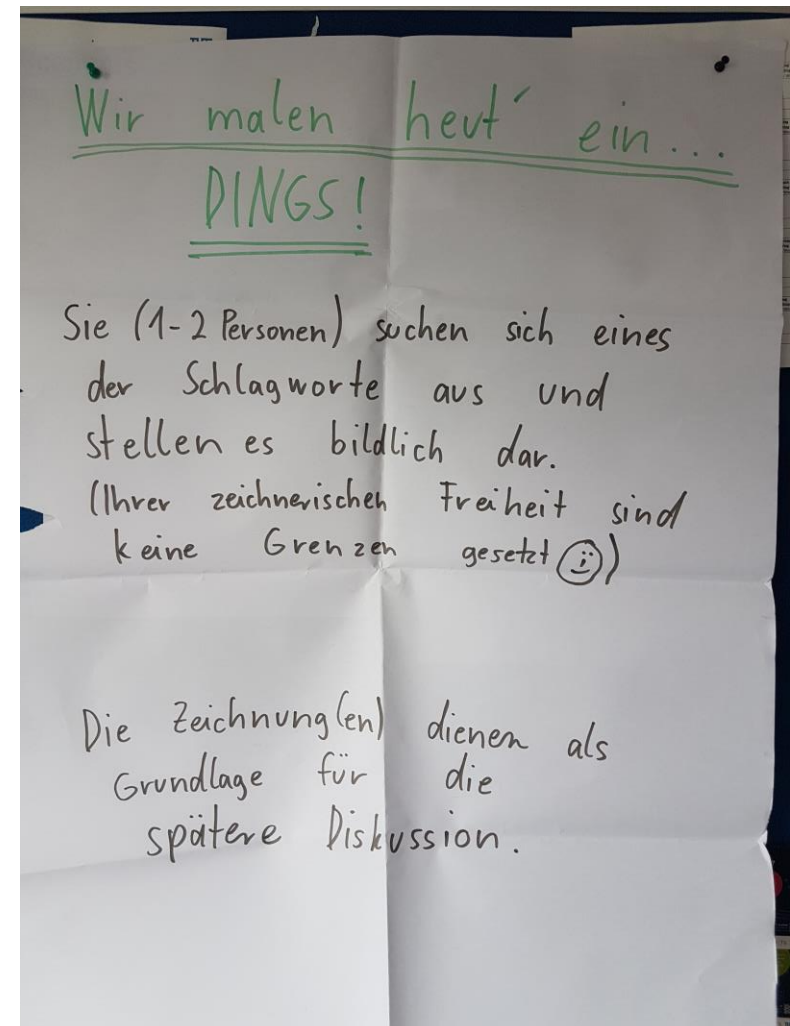 Wir malen heut´ ein...
DINGS!
Sie (1-2 Personen) suchen sich eines
der Schlagworte aus und
stellen es bildlich dar.
(Ihrer zeichnerischen Freiheit sind
keine Grenzen gesetzt ☺)
Die Zeichnung(en) dienen als
Grundlage für die
spätere Diskussion.